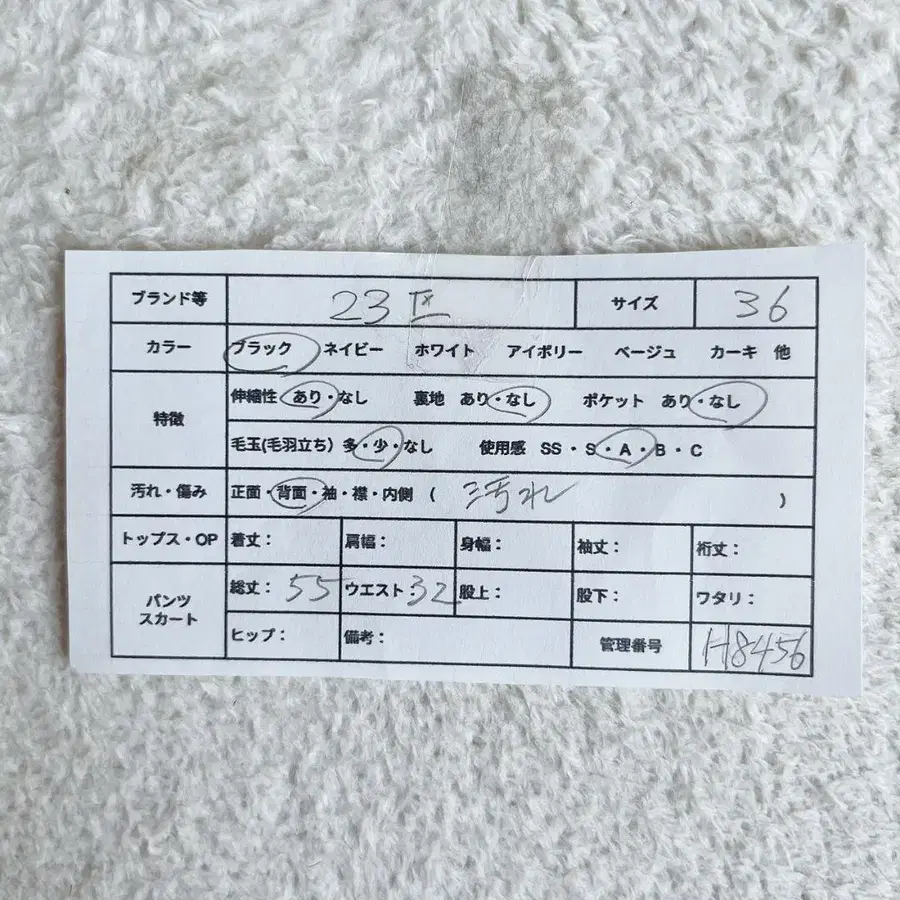 ブランド等 23区 サイズ 36
カラー ブラック ネイビー ホワイト アイボリー ベージュ カーキ 他
特徴 伸縮性 あり・なし 裏地 あり・なし ポケット あり・なし
毛玉(毛羽立ち) 多・少・なし 使用感 SS・S・A・B・C
汚れ・傷み 正面・背面・袖・襟・内側 ( 汚れ )
トップス・OP 着丈: 肩幅: 身幅: 袖丈: 裄丈:
パンツ スカート 総丈: 55 ウエスト: 32 股上: 股下: ワタリ:
ヒップ: 備考: 管理番号 H8456